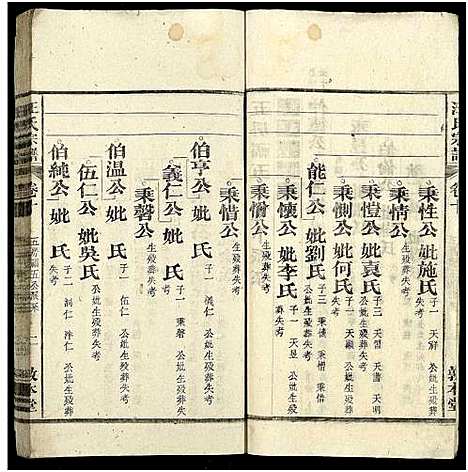 汪氏宗譜
卷十
敦本堂
秉性公 妣施氏 子一 天爵 公妣生殁葬失考
秉情公 生殁葬失考
秉愷公 妣袁氏 子三 天習 天書 天明 公妣生殁葬失考
秉惻公 妣何氏 子一 公妣生殁葬失考
能仁公 妣劉氏 子三 秉懷 秉情 秉惜 公妣生殁葬失考
秉懷公 妣李氏 子一 天显 公妣生殁葬失考
秉惜公 生殁葬失考
伯亨公 妣 氏 子一 義仁 公妣生殁葬失考
義仁公 妣 氏 子一 秉磬 公妣生殁葬失考
秉磬公 生殁葬失考
伯温公 妣 氏 子一 伍仁 公妣生殁葬失考
伍仁公 妣吳氏 公妣生殁葬失考
伯純公 妣 氏 子二 洞仁 泮仁 公妣生殁葬
汪氏宗譜
卷十
敦本堂